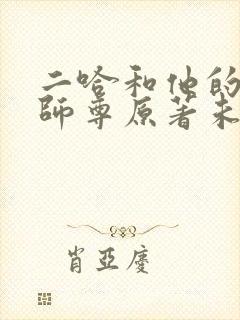 二哈和他的
師尊原著未
肖亞慶